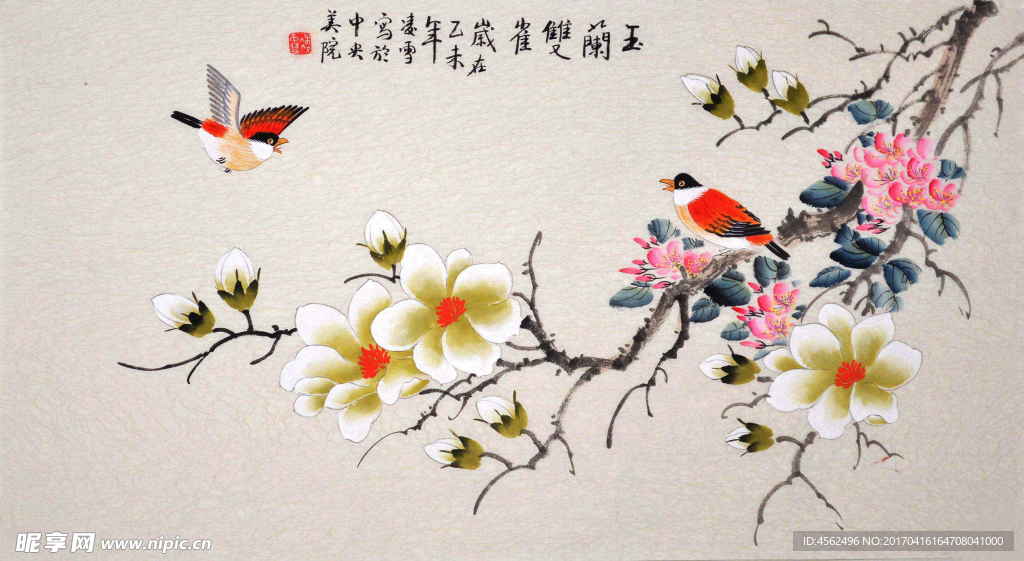 玉
蘭
雙
雀
歲在
乙未
年
凌雪
寫於
中央
美院
昵享网 www.nipic.cn
ID:4562496 NO:20170416164708041000